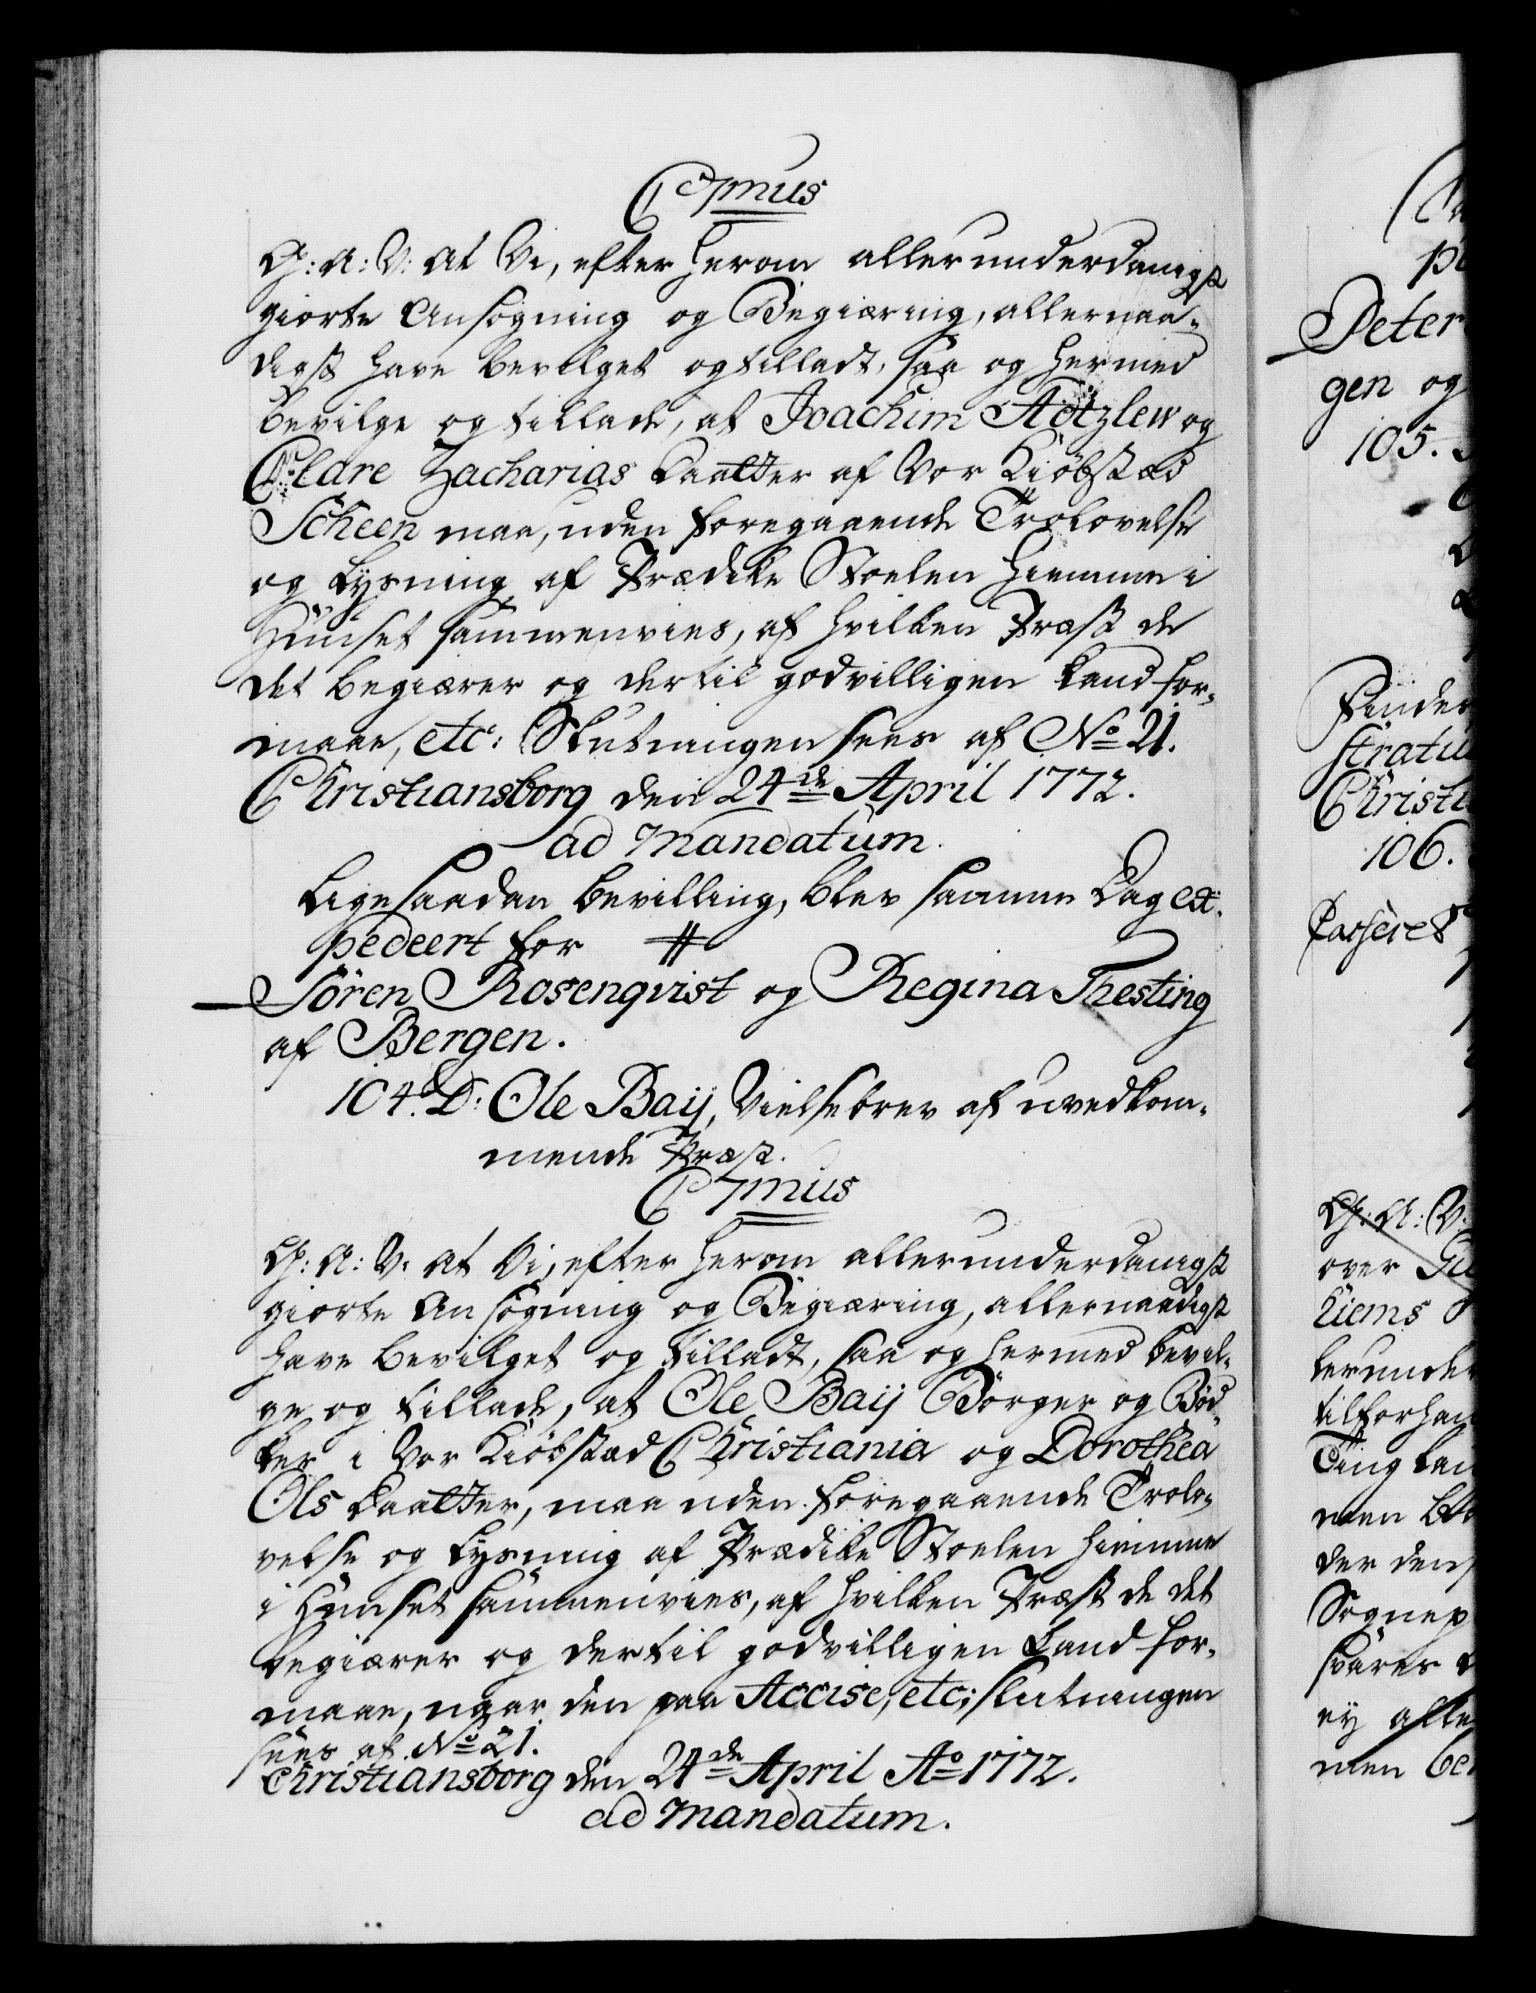 C 7mus
G: A: V: At Vi, efter herom allerunderdanigst
giorte Ansøgning og Begiæring, allernaa-
digst have bevilget og tilladt, saa og hermed
bevilge og tillade, at Joachim Adtzlew og
Clare Zacharias Daatter af Vor Kiøbstæd
Scheen maa, uden foregaaende Trolovelse
og Lysning af Prædike Stoelen hiemme i
Huuset sammenvies, af hvilken Præst de
det begiærer og dertil godvilligen kand for-
maae, etc: Slutningen sees af No 21.
Christiansborg den 24de April 1772.
ad Mandatum.
Ligesaadan bevilling, blev samme Dag ex-
pedeert for
Sören Rosenqvist og Regina Thesting
af Bergen.
104. D: Ole Baij, Vielsebrev af uvedkom-
mende Præst.
C 7mus
G: A: V: At Vi, efter herom allerunderdanigst
giorte Ansøgning og Begiæring, allernaadigst
have bevilget og tilladt, saa og hermed bevil-
ge og tillade, at Ole Baij Börger og Bød-
ker i Vor Kiøbstæd Christiania og Dorothea
Ols Daatter, maa uden foregaaende Trolo-
velse og Lysning af Prædike Stoelen hiemme
i Huuset sammenvies, af hvilken Præst de det
begiærer og dertil godvilligen kand for-
maae, naar den paa Accise, etc; slutningen
sees af No 21.
Christiansborg den 24de April Ao 1772.
ad Mandatum.
Peter
gen og
105.
Christi
106.
Casseret
G: A: V:
over
men
der den
Sognep
ey alle
men